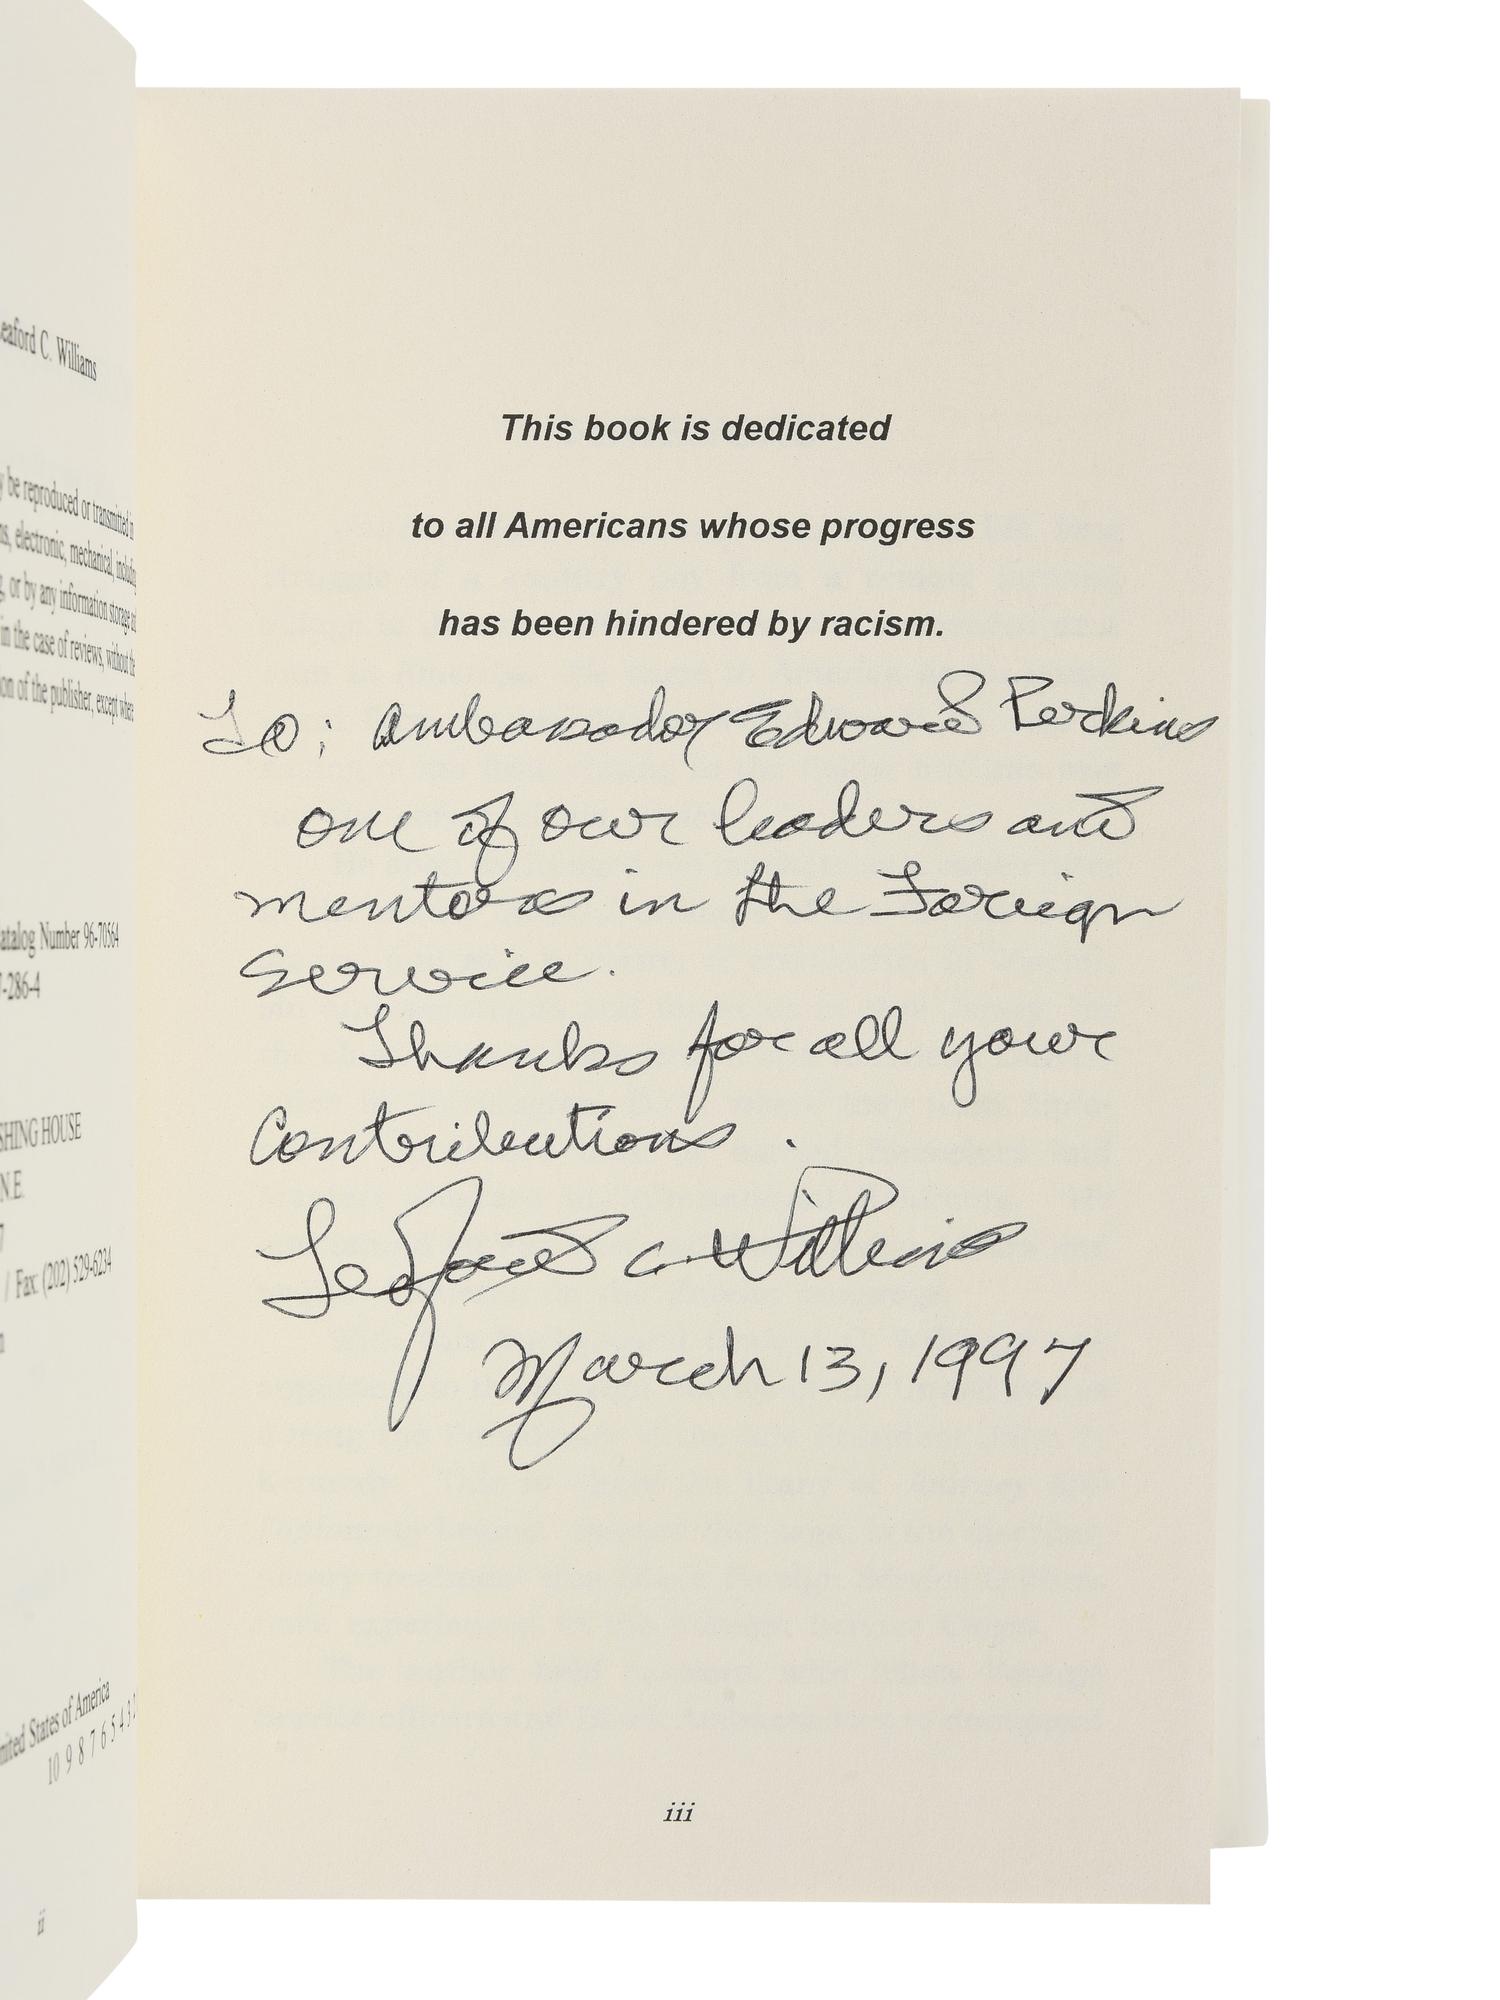 eaford C. Williams
y be reproduced or transmitted in
ns, electronic, mechanical, includin
g, or by any information storage
in the case of reviews, without the
on of the publisher, except where
atalog Number 96-70564
7-286-4
SHING HOUSE
N.E.
7
/ Fax: (202) 529-6234
n
nited States of America
10 9 8 7 6 5 4 3 2
ii
This book is dedicated
to all Americans whose progress
has been hindered by racism.
To: Ambassador Edward Perkins
one of our leaders and
mentors in the Foreign
Service.
Thanks for all your
Contributions.
Leaford C. Williams
March 13, 1997
iii